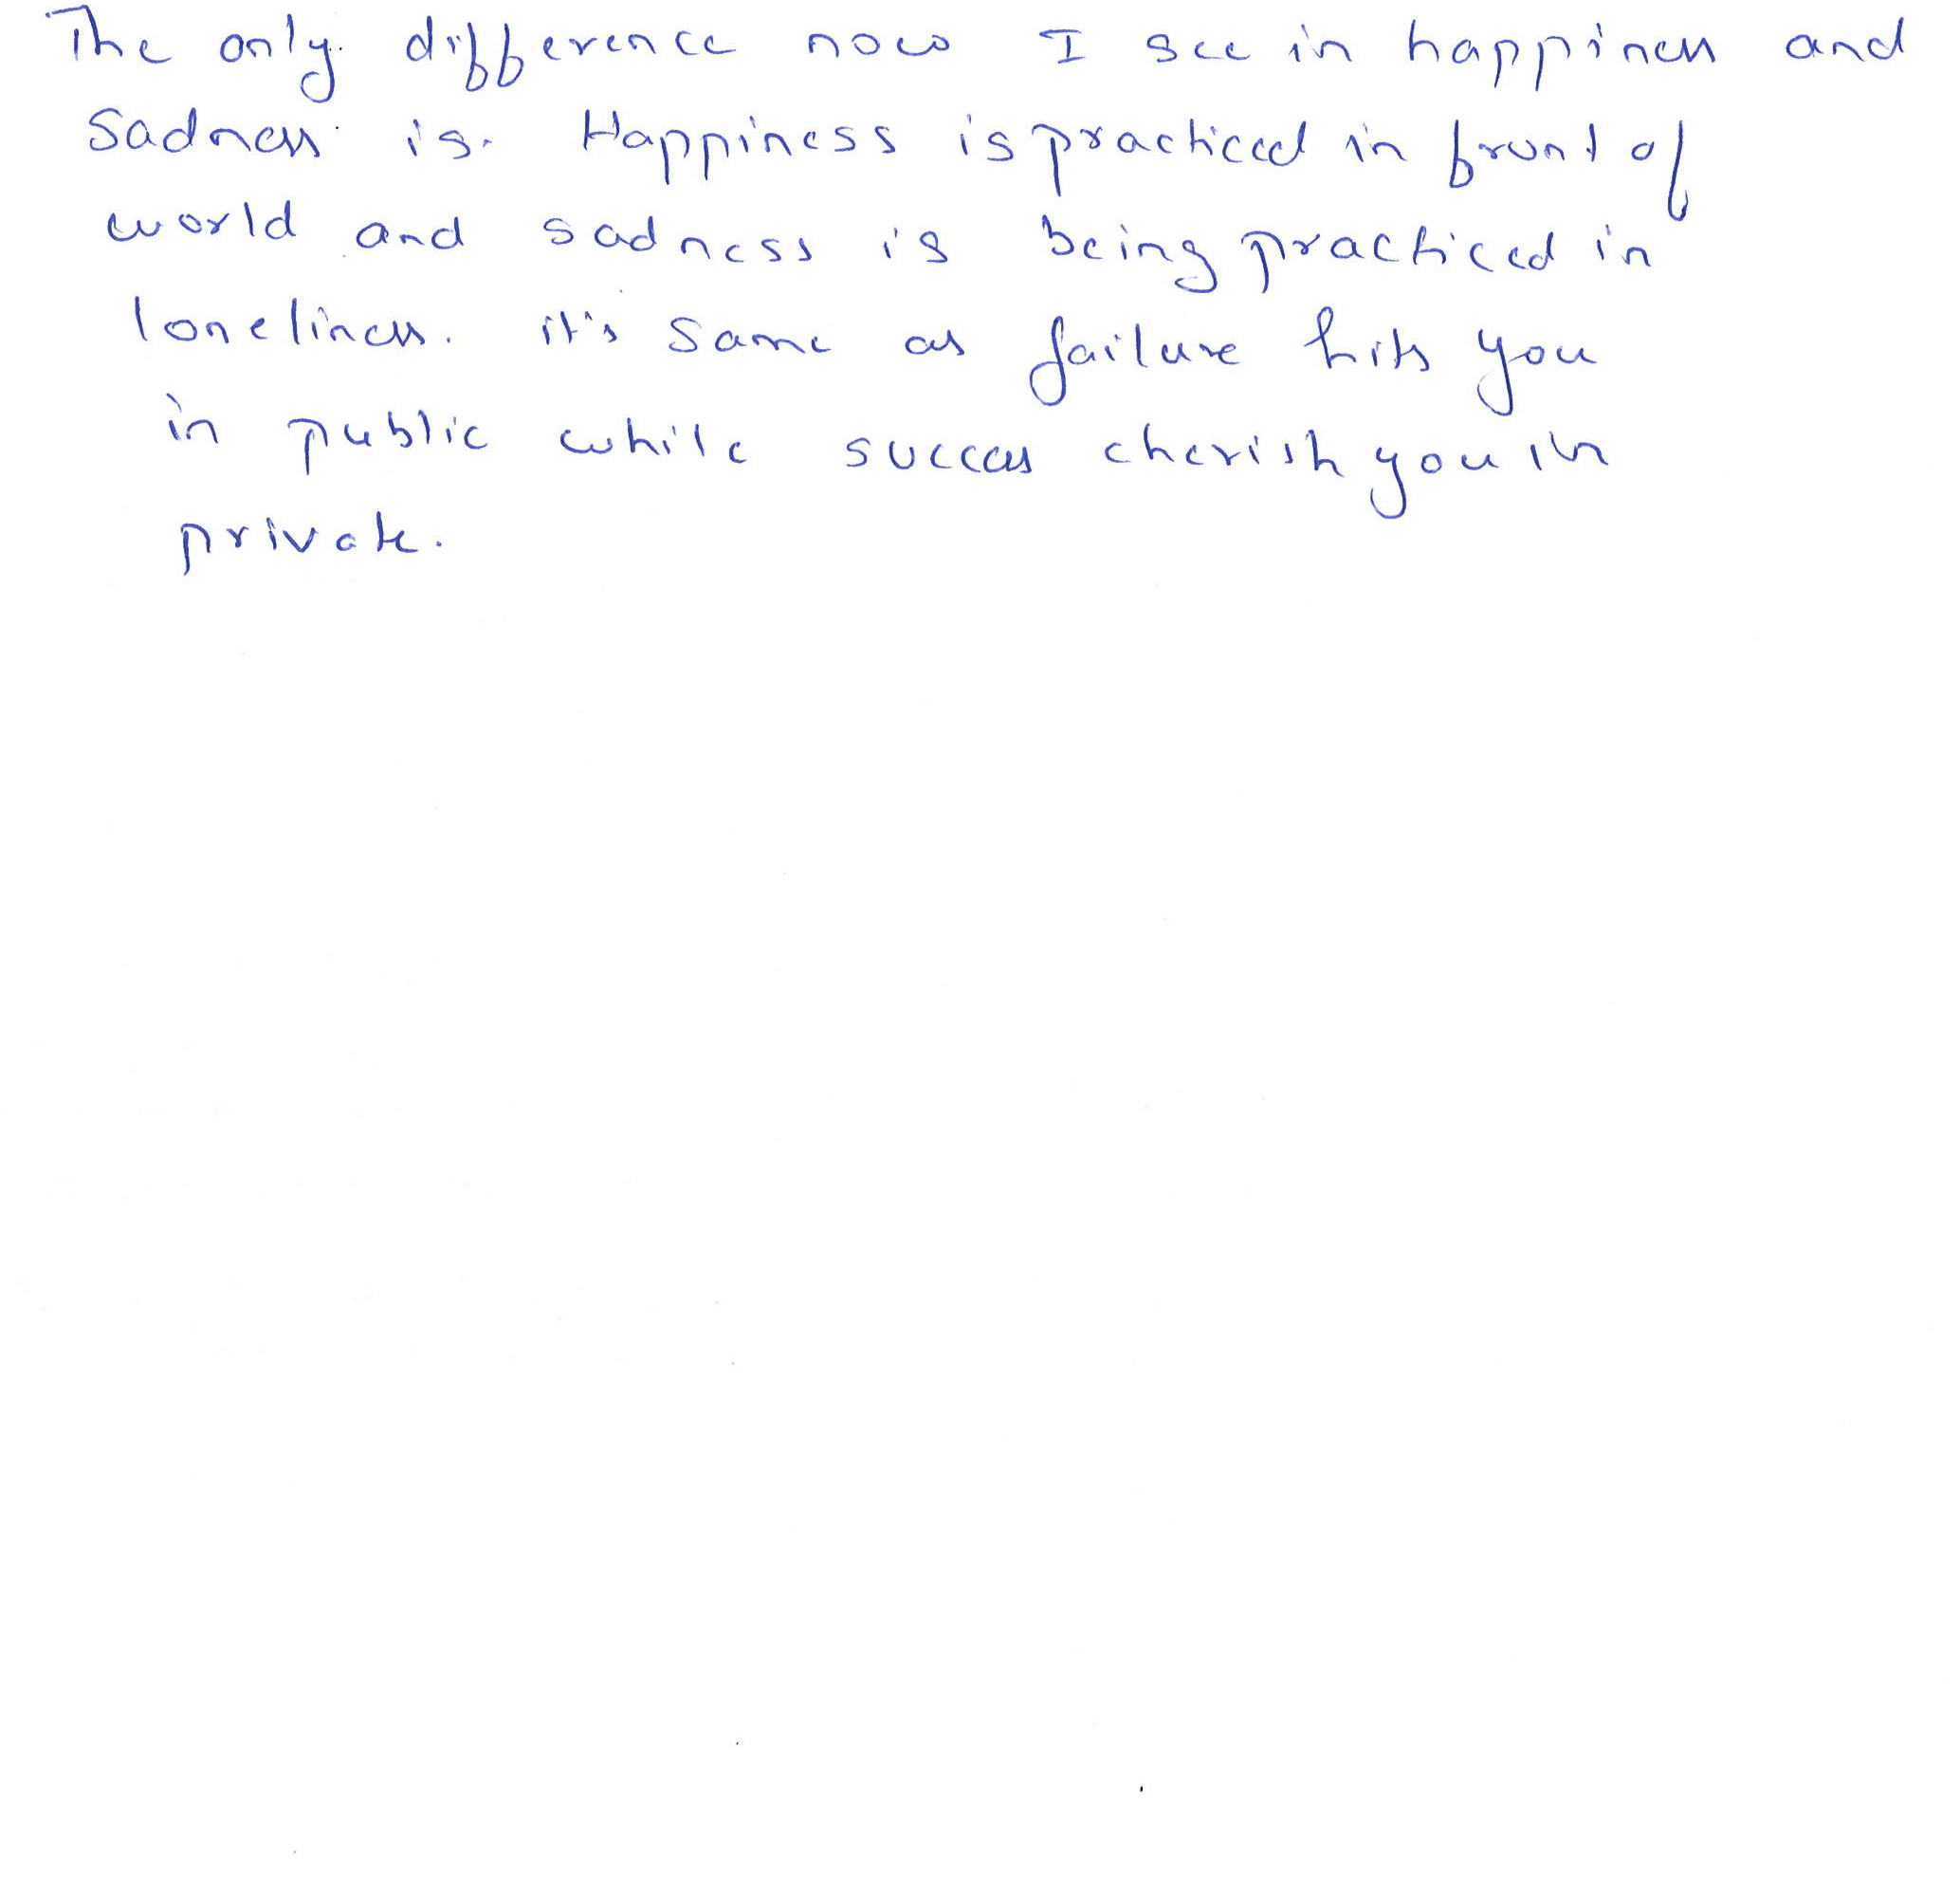 The only difference now I see in happiness and
Sadness is. Happiness is practiced in front of
world and sadness is being practiced in
loneliness. it's same as failure hits you
in public while success cherish you in
private.